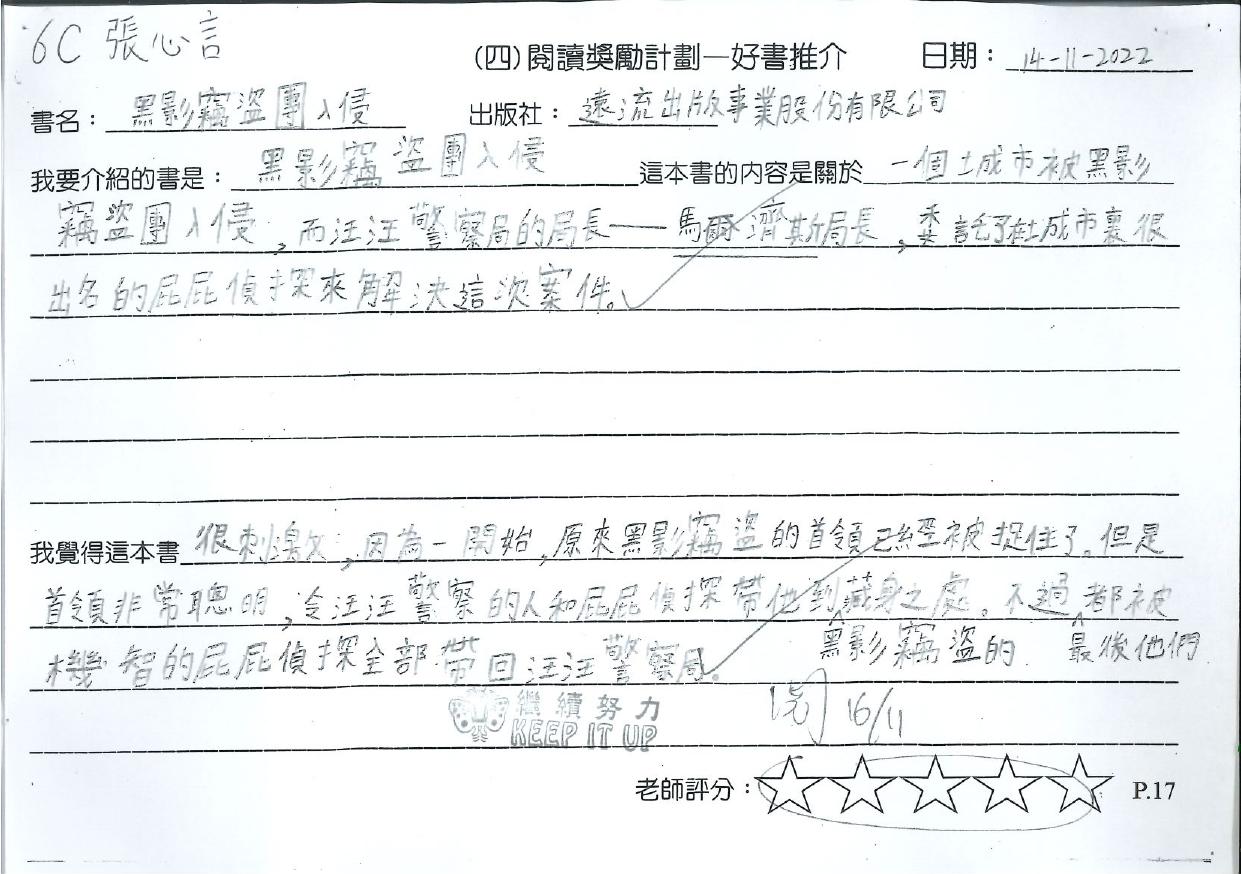 6C 張心言
(四)閱讀獎勵計劃—好書推介 日期：14-11-2022
書名：黑影竊盜團入侵 出版社：遠流出版事業股份有限公司
我要介紹的書是：黑影竊盜團入侵 這本書的內容是關於一個城市被黑影
竊盜團入侵，而汪汪警察局的局長——馬爾濟斯局長，委託了在城市裏很
出名的屁屁偵探來解決這次案件。
我覺得這本書很刺激，因為一開始，原來黑影竊盜的首領已經被捉住了。但是
首領非常聰明，令汪汪警察的人和屁屁偵探帶他到藏身之處。不過都被
黑影竊盜的 最後他們
機智的屁屁偵探全部帶回汪汪警察局。
繼續努力
KEEP IT UP
16/11
老師評分：☆☆☆☆☆ P.17